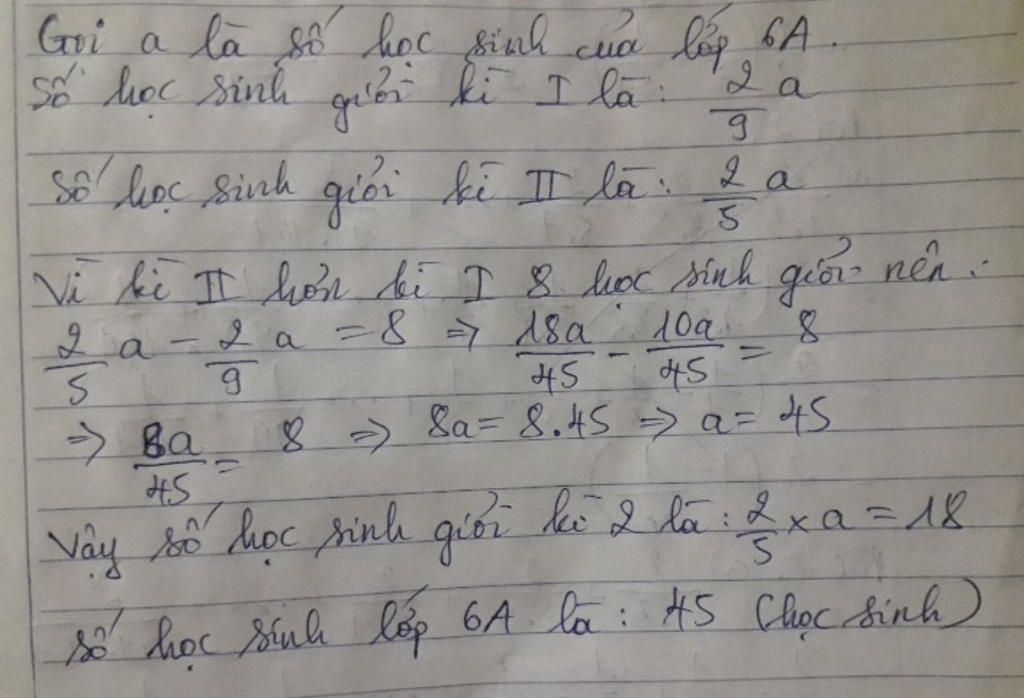 Gọi a là số học sinh của lớp 6A.
Số học sinh giỏi kì I là: 2/9 a
Số học sinh giỏi kì II là: 2/5 a
Vì kì II hơn kì I 8 học sinh giỏi nên:
2/5 a - 2/9 a = 8 => 18a/45 - 10a/45 = 8
=> 8a/45 = 8 => 8a = 8.45 => a = 45
Vậy số học sinh giỏi kì 2 là: 2/5 x a = 18
Số học sinh lớp 6A là: 45 (học sinh)